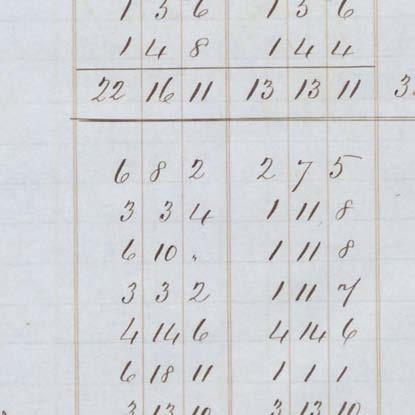 1 3 6 1 3 6
1 4 8 1 4 4
22 16 11 13 13 11 3
6 8 2 2 7 5
3 3 4 1 11 8
6 10 " 1 11 8
3 3 2 1 11 7
4 14 6 4 14 6
6 18 11 1 1 1
3 13 10 3 13 10